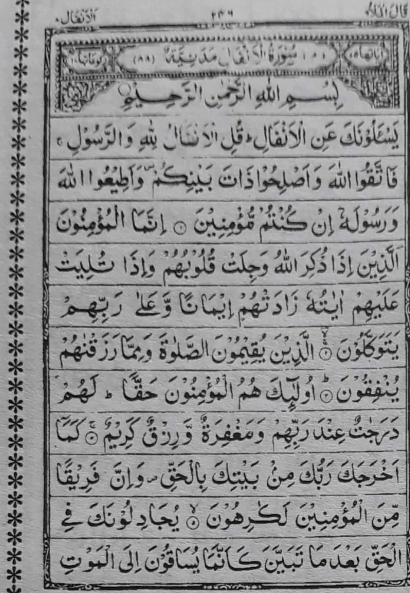 قال الملا ٩
٢٤٦
الانفال ٨
سُوْرَةُ الْاَنْفَالِ مَدَنِيَّةٌ (٨٨)
بِسْمِ اللهِ الرَّحْمٰنِ الرَّحِيْمِ
يَسْـَٔلُوْنَكَ عَنِ الْاَنْفَالِ ؕ قُلِ الْاَنْفَالُ لِلّٰهِ وَ الرَّسُوْلِ ۚ
فَاتَّقُوا اللهَ وَ اَصْلِحُوْا ذَاتَ بَيْنِكُمْ ۪ وَاَطِيْعُوا اللهَ
وَرَسُوْلَهٗۤ اِنْ كُنْتُمْ مُّؤْمِنِيْنَ ۝ اِنَّمَا الْمُؤْمِنُوْنَ
الَّذِيْنَ اِذَا ذُكِرَ اللهُ وَجِلَتْ قُلُوْبُهُمْ وَاِذَا تُلِيَتْ
عَلَيْهِمْ اٰيٰتُهٗ زَادَتْهُمْ اِيْمَانًا وَّ عَلٰى رَبِّهِمْ
يَتَوَكَّلُوْنَ ۝ الَّذِيْنَ يُقِيْمُوْنَ الصَّلٰوةَ وَمِمَّا رَزَقْنٰهُمْ
يُنْفِقُوْنَ ۝ اُولٰٓئِكَ هُمُ الْمُؤْمِنُوْنَ حَقًّا ؕ لَهُمْ
دَرَجٰتٌ عِنْدَ رَبِّهِمْ وَمَغْفِرَةٌ وَّرِزْقٌ كَرِيْمٌ ۝ كَمَاۤ
اَخْرَجَكَ رَبُّكَ مِنْۢ بَيْتِكَ بِالْحَقِّ ۪ وَاِنَّ فَرِيْقًا
مِّنَ الْمُؤْمِنِيْنَ لَكٰرِهُوْنَ ۝ يُجَادِلُوْنَكَ فِي
الْحَقِّ بَعْدَ مَا تَبَيَّنَ كَاَنَّمَا يُسَاقُوْنَ اِلَى الْمَوْتِ